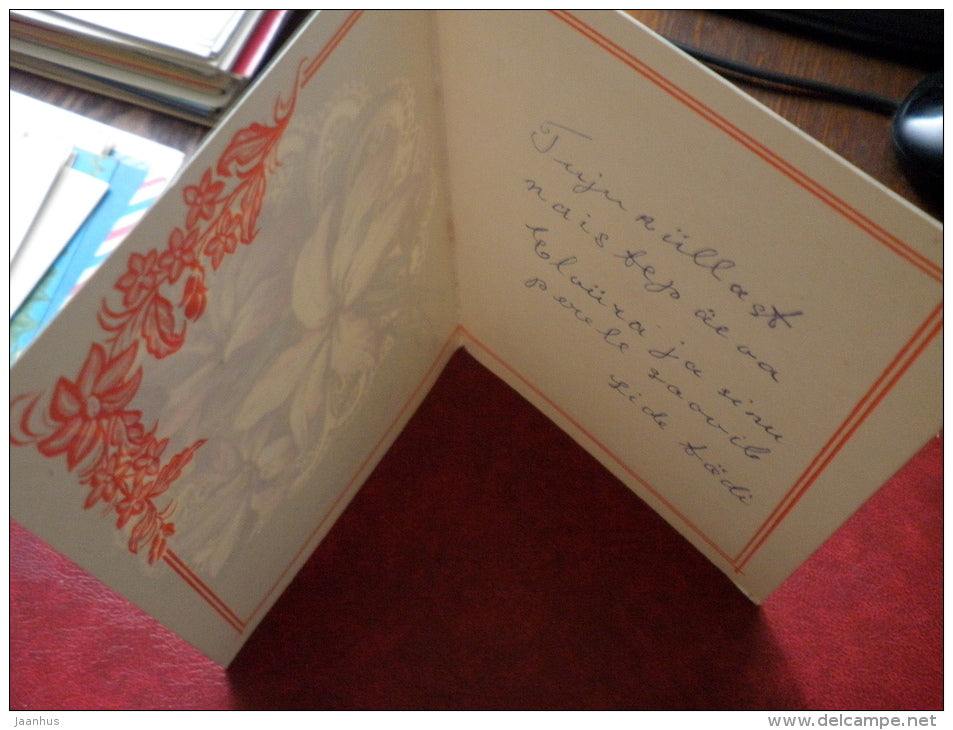 Tuju küllast
naistepäeva
Elvüra ja sinu
perele soovib
side tädi
Jaanhus
www.delcampe.net